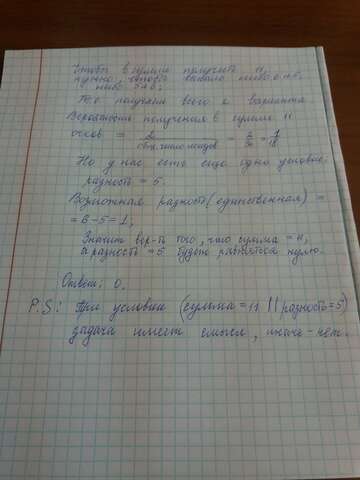 Чтобы в сумме получить 11,
нужно, чтобы выпало либо 6 и 5,
либо 5 и 6.
Т.е получаем всего 2 варианта
Вероятность получения в сумме 11
очков = 2 / общ. число исходов = 2/36 = 1/18
Но у нас есть еще одно условие:
разность = 5.
Возможная разность (единственная) =
= 6-5=1,
Значит вер-ть того, что сумма = 11,
а разность = 5 будет равняться нулю.
Ответ: 0.
P.S: При условии (сумма = 11 || разность = 5)
задача имеет смысл, иначе - нет.